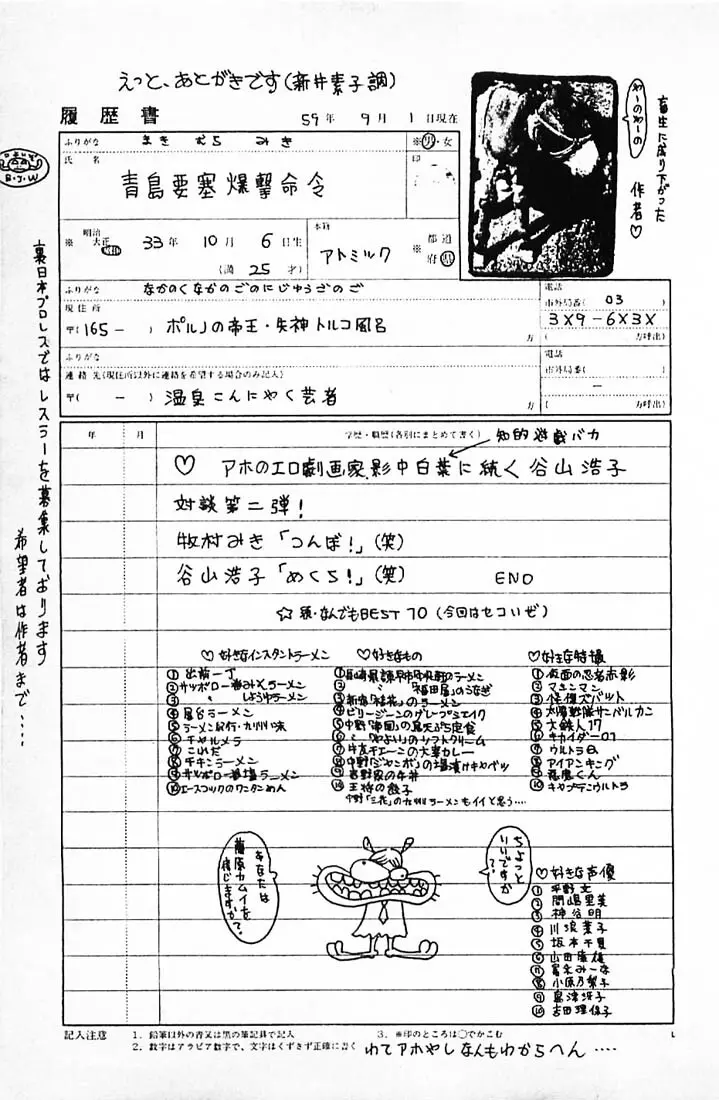 えっと、あとがきです(新井素子調)
履歴書
59年 9月 1日現在
ふりがな まき むら みき
※男・女
氏名
印
青島要塞爆撃命令
※ 明治 大正 昭和 33年 10月 6日生
(満 25 才)
本籍
アトミック
※ 都道府県
ふりがな なかのくなかのごのにじゅうごのご
現住所
〒(165- ) ポルノの帝王・失神トルコ風呂
方
電話
市外局番( 03
3X9-6X3X
(方呼出)
ふりがな
連絡先(現住所以外に連絡を希望する場合のみ記入)
〒( - ) 温泉こんにゃく芸者
方
電話
市外局番(
-
(方呼出)
年 月 学歴・職歴(各別にまとめて書く)
知的遊戯バカ
♡ アホのエロ劇画家、影中白葉に続く谷山浩子
対談第二弾!
牧村みき「つんぼ!」(笑)
谷山浩子「めくら!」(笑) END
☆続・なんでもBEST10(今回はセコいぜ)
♡好きなインスタントラーメン
① 出前一丁
② サッポロ一番みそラーメン
③ 〃 しょうゆラーメン
④ 屋台ラーメン
⑤ ラーメン紀行・九州味
⑥ チャルメラ
⑦ これだ
⑧ チキンラーメン
⑨ サッポロ一番塩ラーメン
⑩ エースコックのワンタンめん
♡好きなもの
② 〃 「福田屋」のうなぎ
③ 新宿「桂花」のラーメン
④ ビリージーンのグレープシェイク
⑥ 〃 「やよい」のソフトクリーム
⑦ 牛友チェーンの大妻カレー
⑧ 中野「ジャンボ」の塩漬けキャベツ
⑨ 吉野家の牛丼
⑩ 王将の餃子
中野「三花」の九州ラーメンもイイと思う‥‥
♡好きな特撮
① 仮面の忍者赤影
② マシンマン
③ 怪傑ズバット
④ 太陽戦隊サンバルカン
⑤ 大鉄人17
⑥ キカイダー01
⑦ ウルトラQ
⑧ アイアンキング
⑨ 悪魔くん
⑩ キャプテンウルトラ
あなたは藤原カムイを信じますか?
ちょっといいですか?
♡好きな声優
① 平野文
② 間嶋里美
③ 神谷明
④ 川浪葉子
⑤ 坂本千夏
⑥ 山田康雄
⑦ 冨永みーな
⑧ 小原乃梨子
⑨ 島津冴子
⑩ 吉田理保子
記入注意 1. 鉛筆以外の青又は黒の筆記具で記入 3. ※印のところは○でかこむ
2. 数字はアラビア数字で、文字はくずさず正確に書く
わてアホやしなんもわからへん‥‥
畜生に成り下がった
作者♡
わーのわーの
B・J・W
裏日本プロレスではレスラーを募集しております
希望者は作者まで‥‥